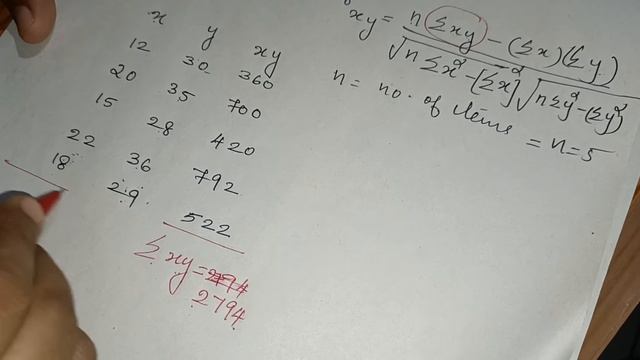 x y xy
12 30 360
20 35 700
15 28 420
22 36 792
18 29 522
Σxy = 2794
2794
xy = n Σxy - (Σx)(Σy)
√n Σx² - [Σx]² √nΣy² - (Σy²)
n = no. of items = n = 5